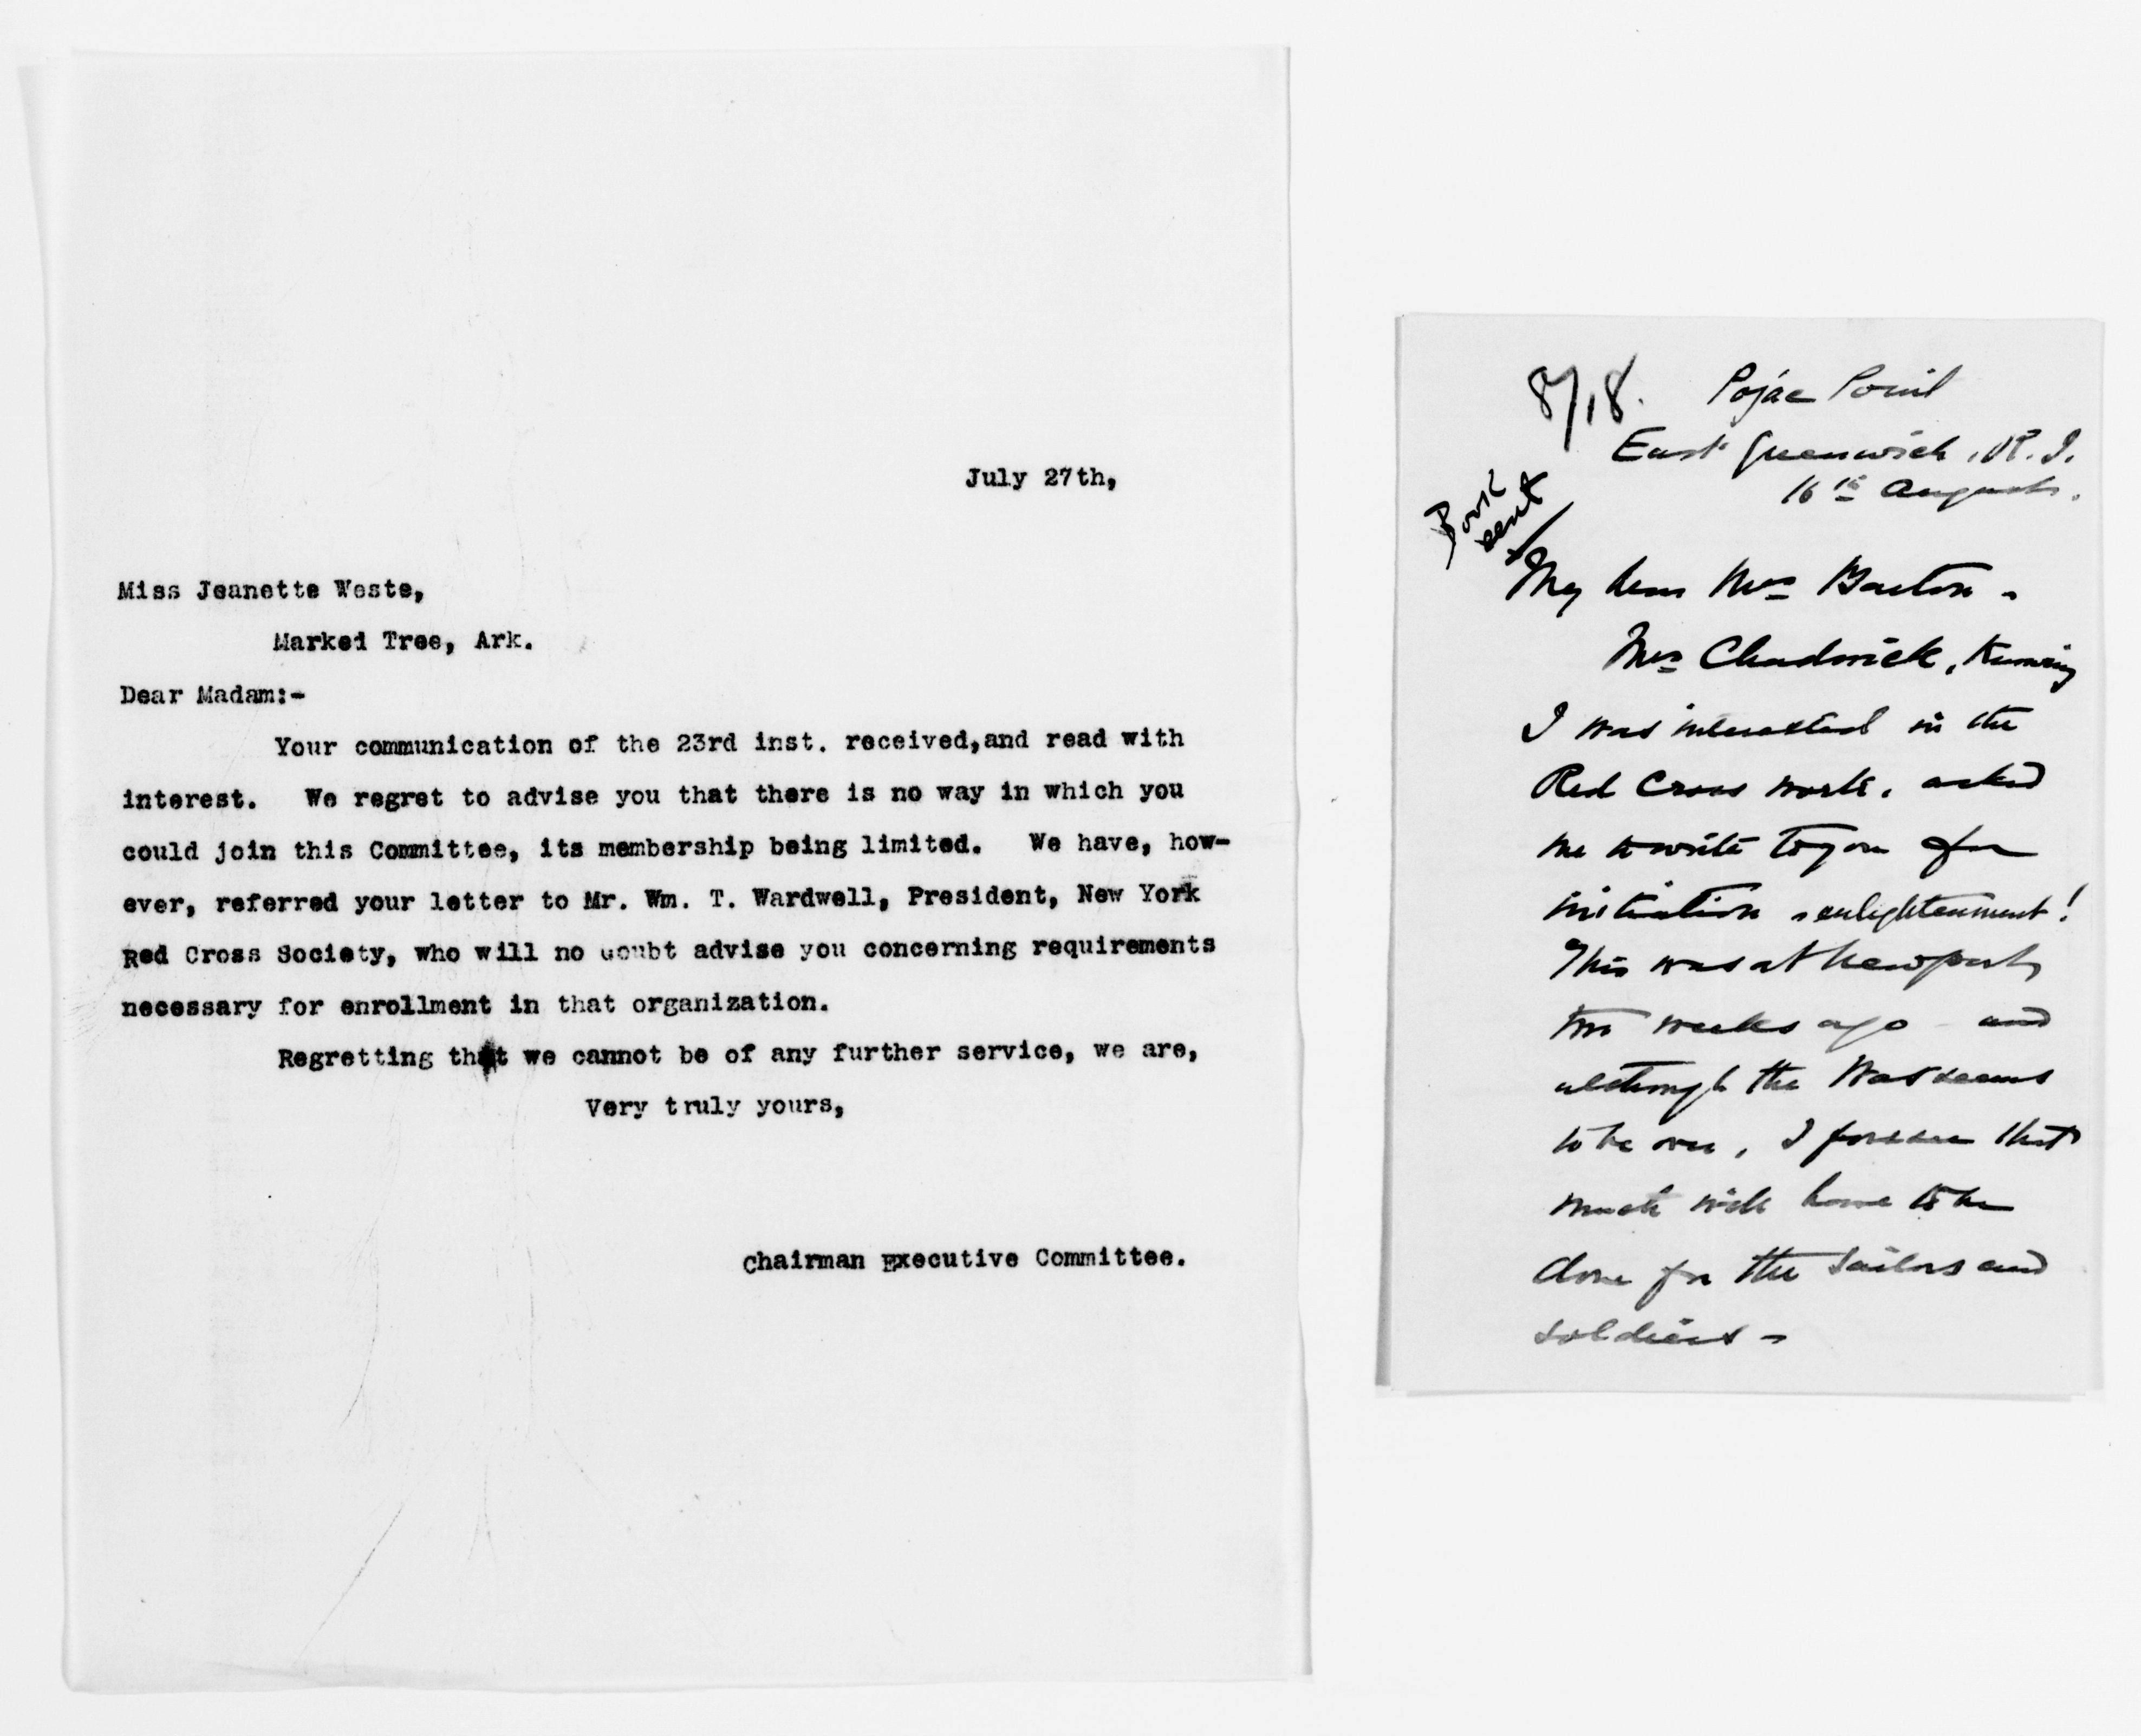 July 27th,
Miss Jeanette Weste,
Marked Tree, Ark.
Dear Madam:-
Your communication of the 23rd inst. received,and read with
interest. We regret to advise you that there is no way in which you
could join this Committee, its membership being limited. We have, how-
ever, referred your letter to Mr. Wm. T. Wardwell, President, New York
Red Cross Society, who will no doubt advise you concerning requirements
necessary for enrollment in that organization.
Regretting that we cannot be of any further service, we are,
Very truly yours,
Chairman Executive Committee.
8/18.
Pojac Point
East Greenwich, R.I.
16th August.
Book
sent
My dear Mrs Barton -
Mrs Chadwick, knowing
I was interested in the
Red Cross work, asked
me to write to you for
initiation & enlightenment!
This was at Newport,
two weeks ago - and
although the War seems
to be over, I foresee that
much will have to be
done for the sailors and
soldiers -